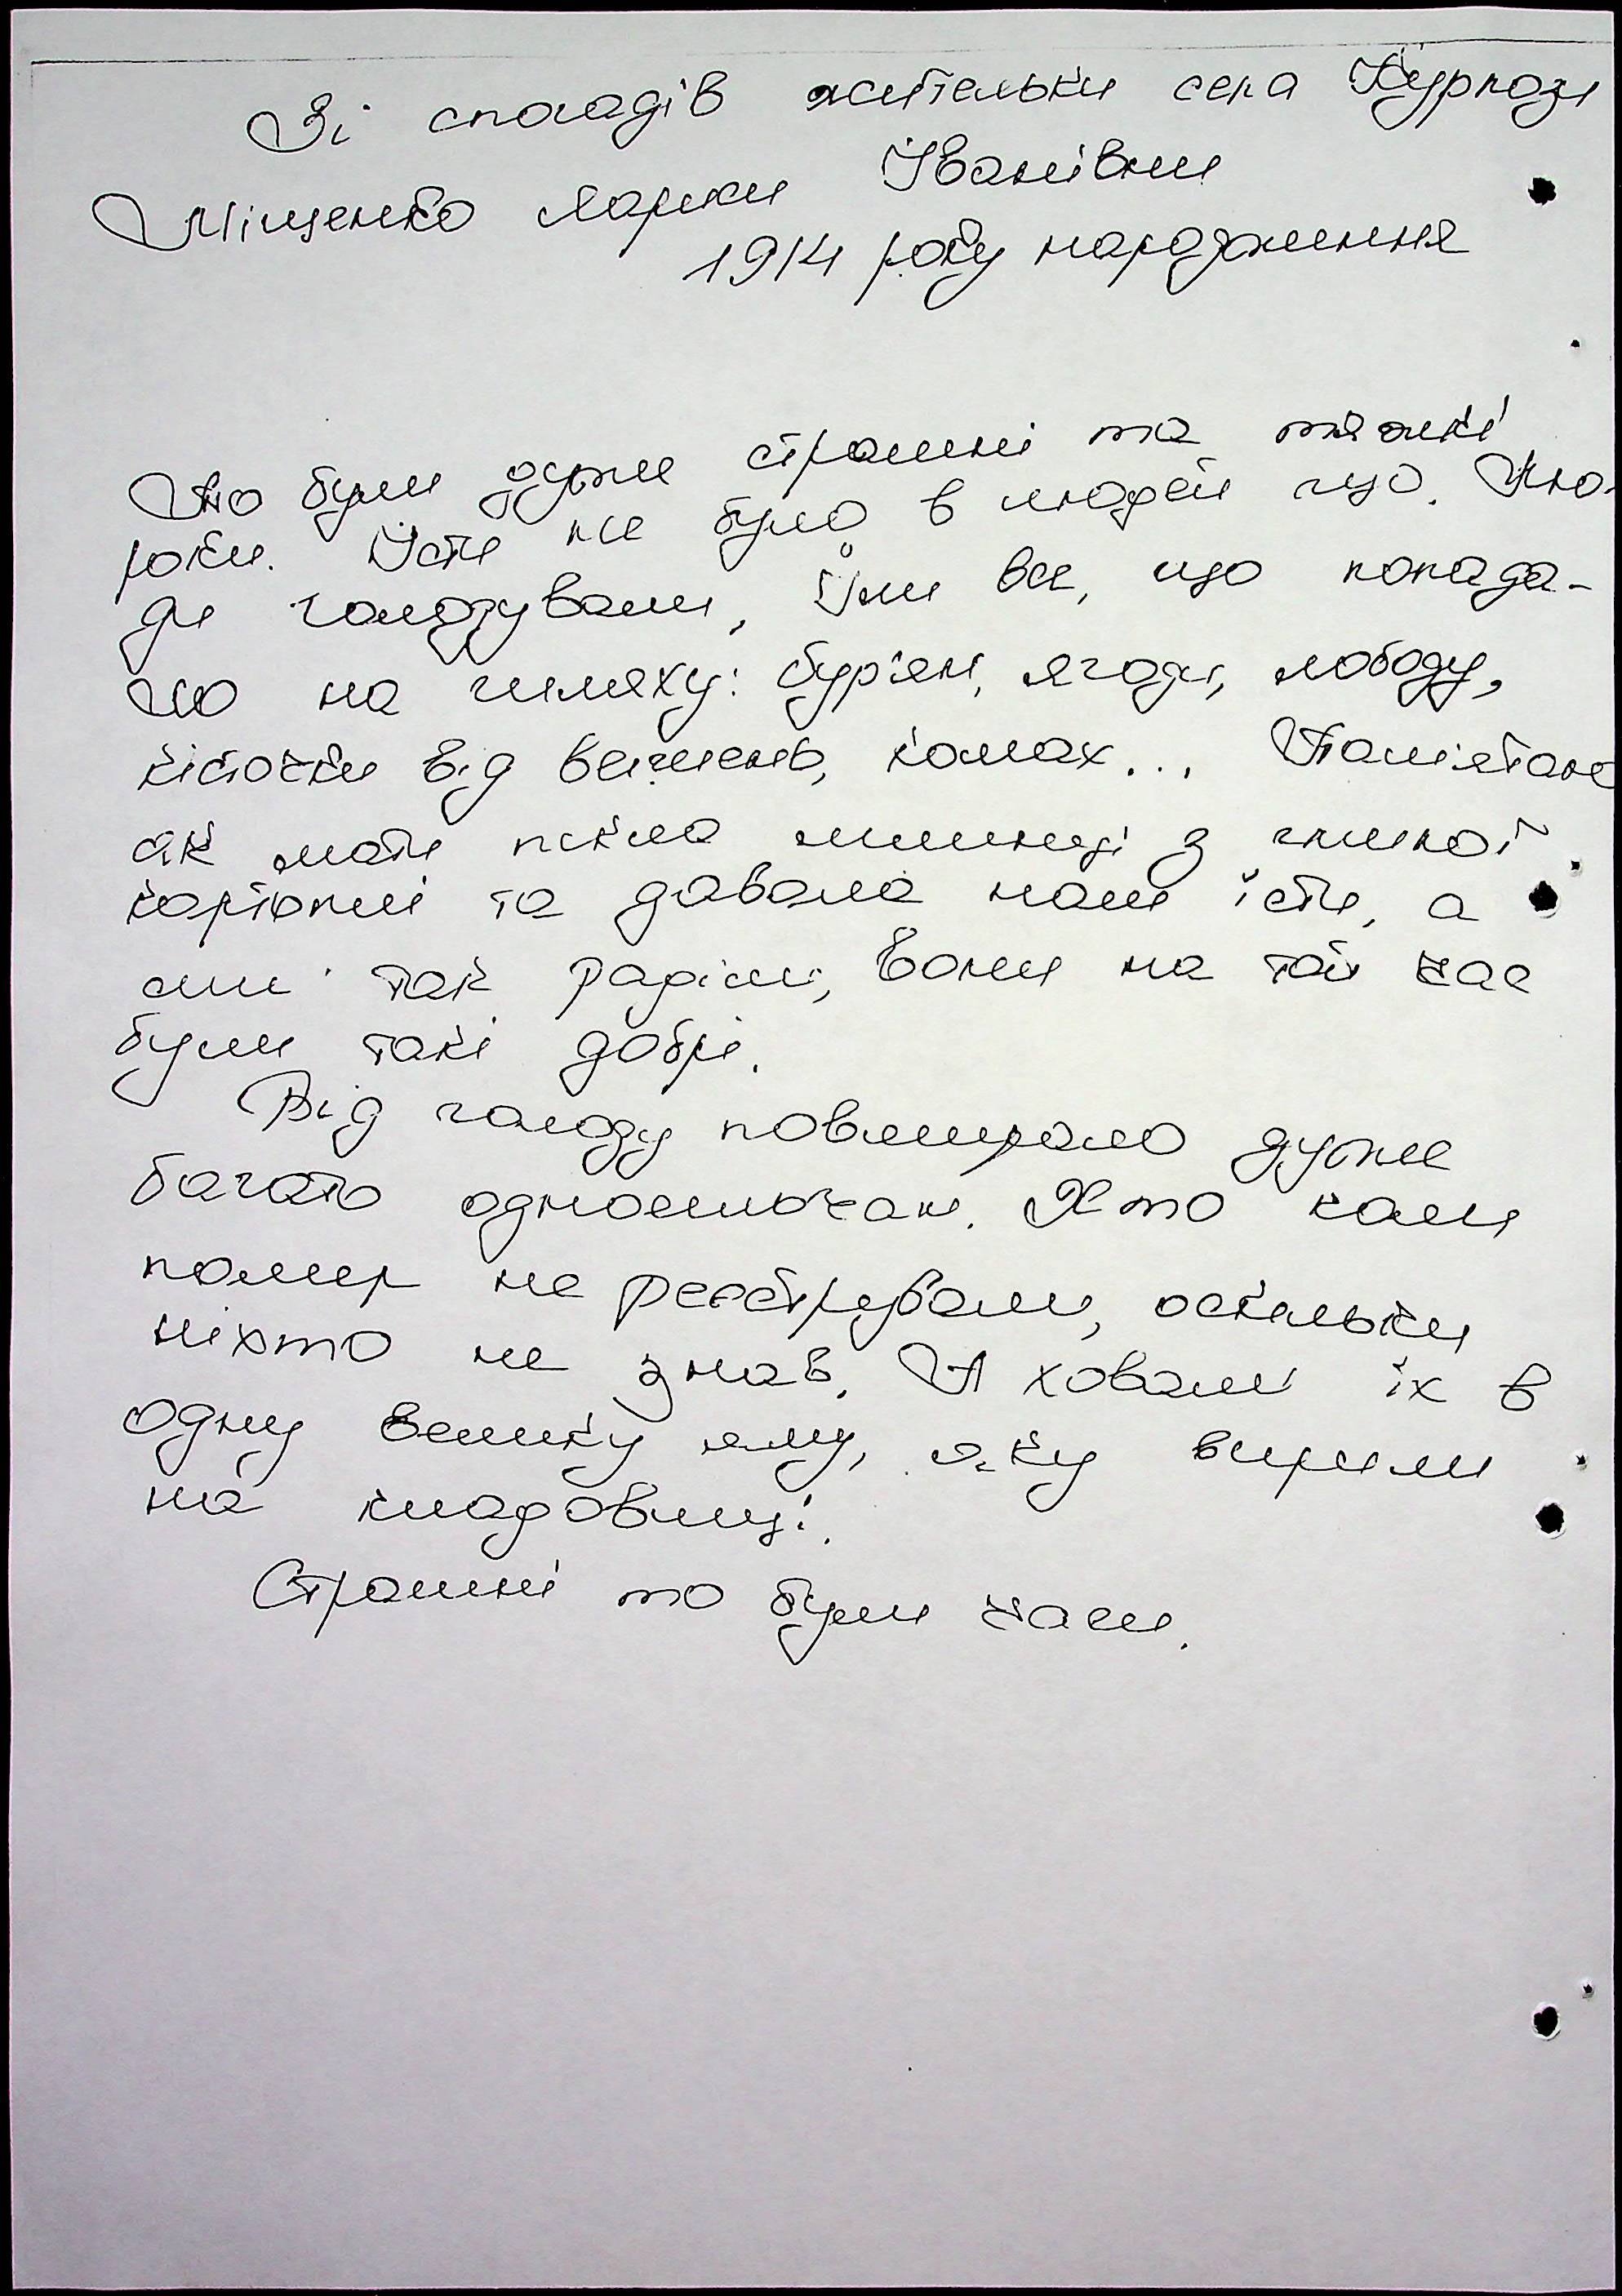 Зі спогадів жительки села Курпози
Міщенко Марии Іванівни
1914 року народження
То були дуже страшні та тяжкі
роки. Їсти не було в людей що. Лю-
ди голодували, їли все, що попада-
ло на шляху: бур'ян, ягоди, лободу,
кісточки від вишень, комах... Пам'ятаю
як мати пекла млинці з гнилої
картоплі та давала нам їсти, а
ми так раділи, вони на той час
були такі добрі.
Від голоду повмирало дуже
багато односельчан. Хто коли
помер не реєстрували, оскільки
ніхто не знав. А ховали їх в
одну велику яму, яку вирили
на кладовищі.
Страшні то були часи.